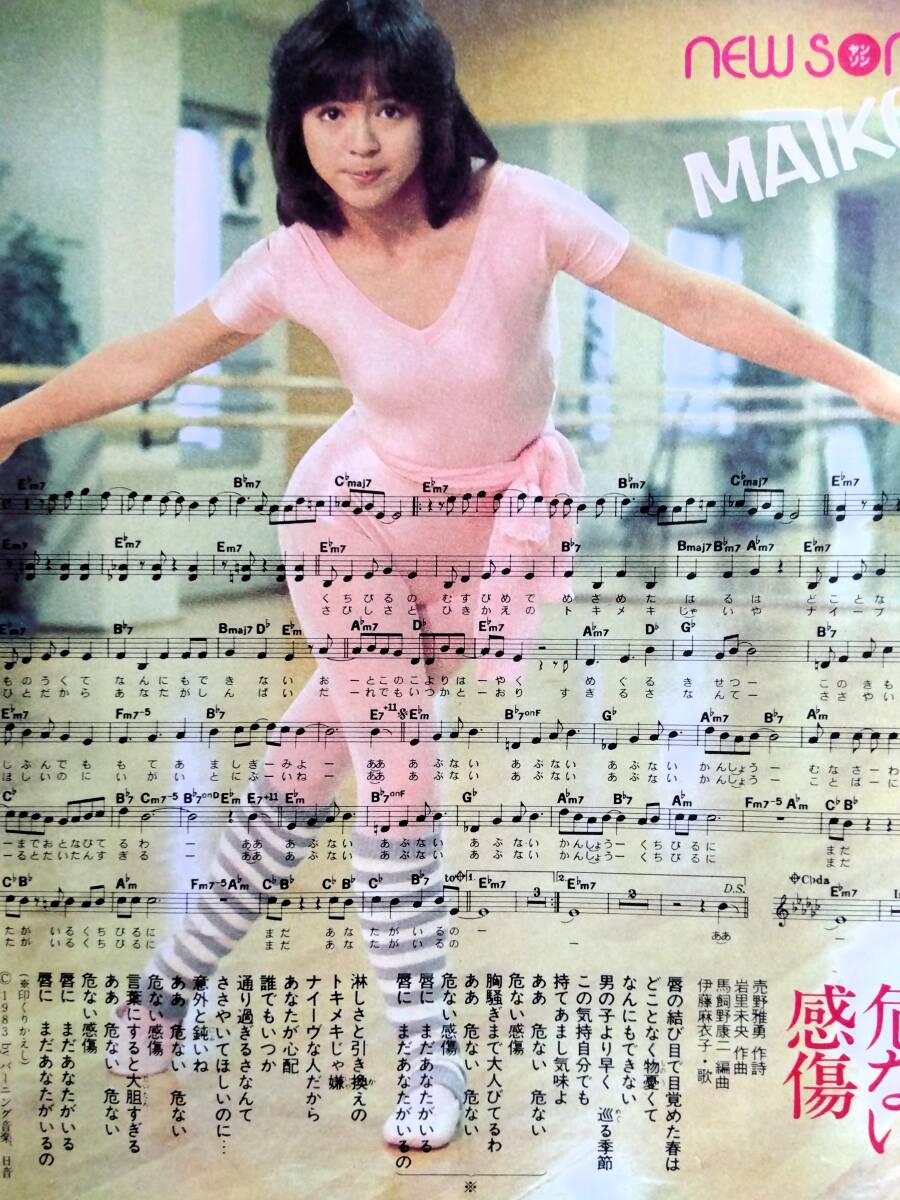 NEW SON
ヤンソン
MAIKO
危ない
感傷
売野雅勇 作詩
岩里未央 作曲
馬飼野康二 編曲
伊藤麻衣子・歌
E♭m7 B♭m7 C♭maj7 E♭m7 B♭m7 C♭maj7 E♭m7
Em7 E♭m7 Em7 E♭m7 B♭7 Bmaj7 B♭m7 A♭m7 E♭m7
くちびるの むすびめで めざめた はるは どことな
さびしさと ひきかえの トキメキ じゃ いや ナイーブ
E♭m7 B♭7 Bmaj7 D♭ E♭m A♭m7 D♭ E♭m7 A♭m7 D♭ G♭ B♭7
ものうくて なんにもできない おーとこのこよりはーやく めぐるきせつー このきも
ひとだから あなたがしんぱい だーれでもいつかとーおり すぎるさなんてー ささやい
E♭m7 Fm7-5 B♭7 E7+11 E♭m B♭7onF G♭ A♭m7 B♭7 A♭m
しぶんでも もてあましぎーみよー ああ あぶない あぶない あぶない かんしょうー むなさーわ
ほしいのに いがいとにぶーいねー ああ あぶない あぶない あぶない かんしょうー ことばーに
C♭ B♭7 Cm7-5 B♭7onD E♭m E7+11 E♭m B♭7onF G♭ A♭m7 B♭7 A♭m Fm7-5 A♭m C♭ B♭
ーまでおとなびてるわー ああ あぶない あぶない あぶない かんしょうー くちびるに まだ
ーるとだいたんすぎるー ああ あぶない あぶない あぶない かんしょうー くちびるに まだ
C♭ B♭ A♭m Fm7-5 A♭m C♭ B♭ C♭ B♭ C♭ B♭7 to 1. E♭m7 3 2. E♭m7 2 D.S. Coda E♭m7
たが いるくちびるに まだ あなたがいるのー ああ ー
たが いるくちびるに まだ あなたがいるのー ー
唇の結び目で目覚めた春は
どことなく物憂くて
なんにもできない
男の子より早く 巡る季節
この気持自分でも
持てあまし気味よ
ああ 危ない 危ない
危ない感傷
胸騒ぎまで大人びてるわ
ああ 危ない 危ない
危ない感傷
唇に まだあなたがいる
唇に まだあなたがいるの
※
淋しさと引き換えの
トキメキじゃ嫌
ナイーヴな人だから
あなたが心配
誰でもいつか
通り過ぎるさなんて
ささやいてほしいのに…
意外と鈍いね
ああ 危ない 危ない
危ない感傷
言葉にすると大胆すぎる
ああ 危ない 危ない
危ない感傷
唇に まだあなたがいる
唇に まだあなたがいるの
(※印くりかえし)
© 1983 by バーニング音楽、日音